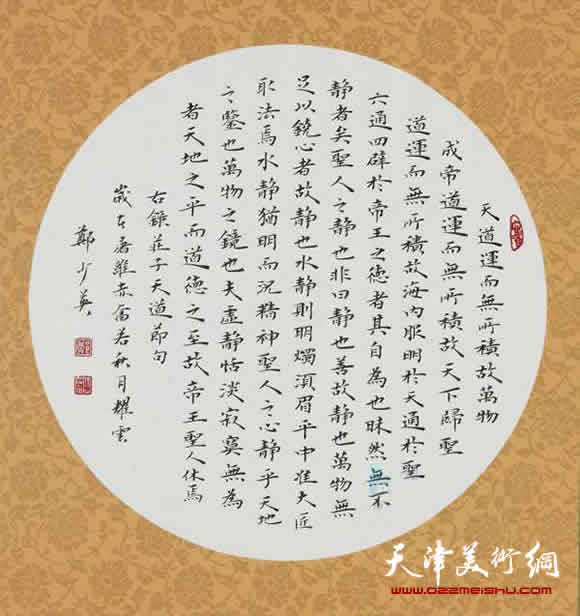 天道運而無所積故萬物
成帝道運而無所積故天下歸聖
道運而無所積故海內服明於天通於聖
六通四辟於帝王之德者其自為也昧然無不
靜者矣聖人之靜也非曰靜也善故靜也萬物無
足以鐃心者故靜也水靜則明燭須眉平中准大匠
取法焉水靜猶明而況精神聖人之心靜乎天地
之鑒也萬物之鏡也夫虛靜恬淡寂寞無為
者天地之平而道德之至故帝王聖人休焉
右錄莊子天道節句
歲在屠維赤奮若秋月耀雲
鄭少英
天津美術網
www.022meishu.com